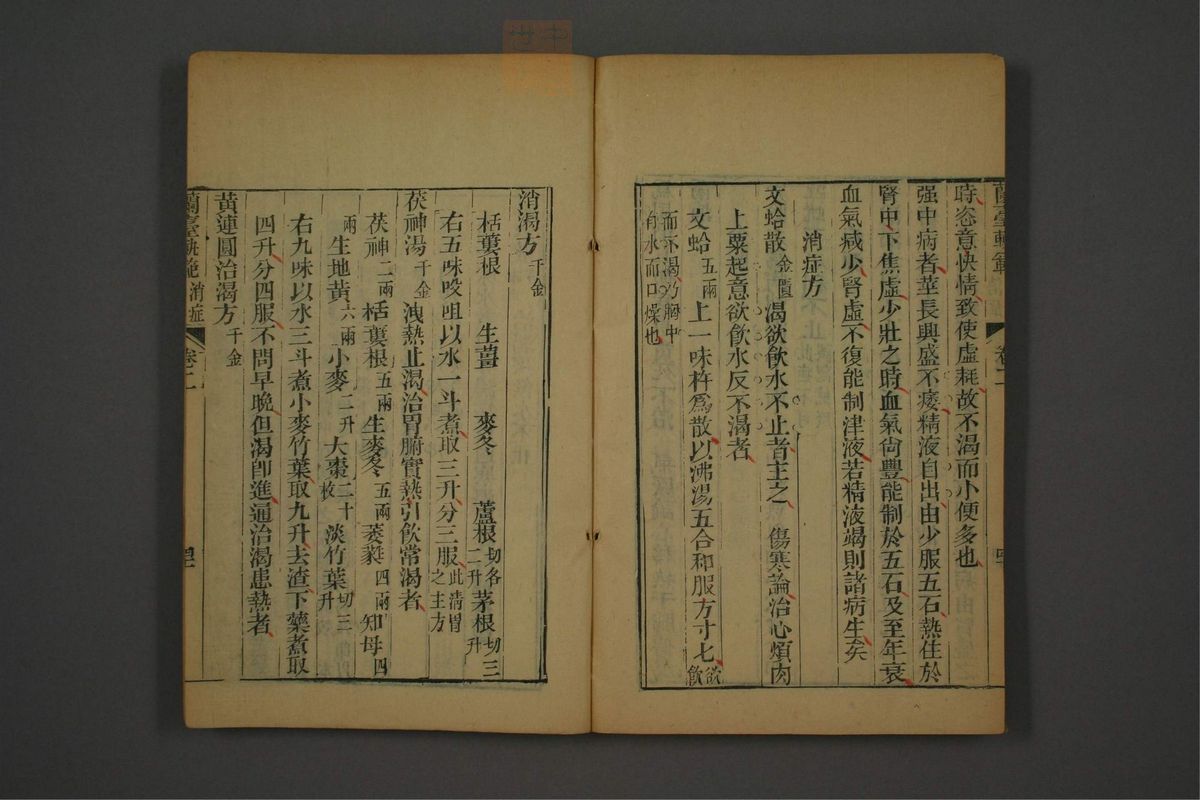 時恣意快情致使虛耗故不渴而小便多也
强中病者莖長興盛不痿精液自出由少服五石熱住於
腎中下焦虛少壯之時血氣尚豐能制於五石及至年衰
血氣減少腎虛不復能制津液若精液竭則諸病生矣
消症方
文蛤散金匱渴欲飮水不止者主之 傷寒論治心煩肉
上粟起意欲飮水反不渴者
文蛤五兩 上一味杵爲散以沸湯五合和服方寸匕欲飮
而不渴乃胸中有水而口燥也
蘭臺軌範 卷二
消渴方千金
栝蔞根 生薑 麥冬 蘆根切各二升 茅根切三升
右五味㕮咀以水一斗煮取三升分三服此淸胃之主方
茯神湯千金 洩熱止渴治胃腑實熱引飮常渴者
茯神二兩 栝蔞根五兩 生麥冬五兩 萎蕤四兩 知母四
兩 生地黃六兩 小麥二升 大棗二十枚 淡竹葉切三升
右九味以水三斗煮小麥竹葉取九升去渣下藥煮取
四升分四服不問早晚但渴卽進通治渴患熱者
黃連圓治渴方千金
蘭臺軌範 消症 卷二